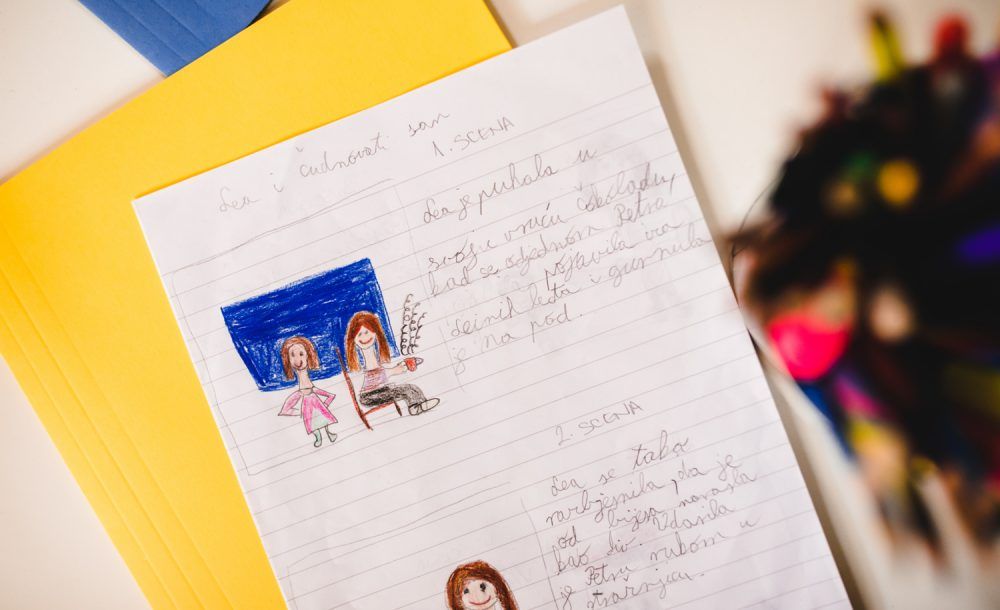 Lea i čudnovati san
1. SCENA
Lea je puhala u
svoju vruću čokoladu,
kad se odjednom Petra
pojavila iza
Leinih leđa i gurnula
je na pod.
2. SCENA
Lea se tako
razbjesnila, da je
od bijesa narasla
kao div. Udarila
je Petru rukom u
stražnjicu.